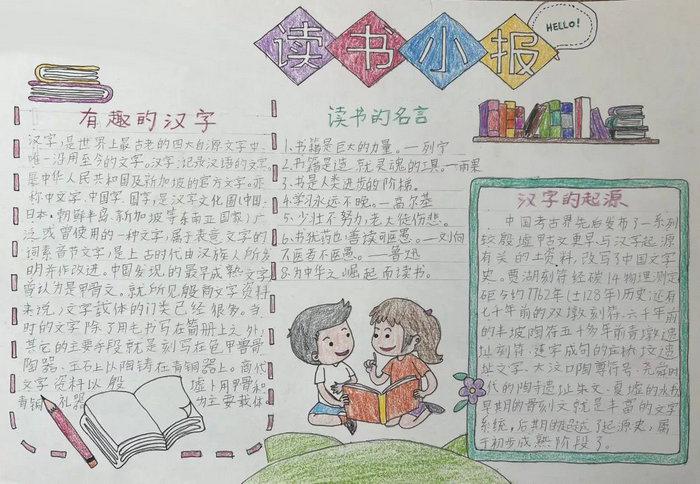 读书小报
HELLO!
有趣的汉字
汉字,是世界上最古老的四大自源文字中
唯一沿用至今的文字。汉字,记录汉语的文字
是中华人民共和国及新加坡的官方文字。亦
称中文字、中国字、国字,是汉字文化圈(中国、
日本、朝鲜半岛、新加坡等东南亚国家)广
泛或曾使用的一种文字,属于表意文字的
词素音节文字,是上古时代由汉族人所发
明并作改进。中国发现的最早成熟文字
曾认为是甲骨文。就所见殷商文字资料
来说,文字载体的门类已经很多。当
时的文字除了用毛书写在简册上之外,
其它的主要手段就是刻写在龟甲兽骨、
陶器、玉石上以陶铸在青铜器上。商代
文字资料以殷墟卜用甲骨和
青铜礼器为主要载体
读书的名言
1.书籍是巨大的力量。—列宁
2.书籍是造就灵魂的工具。—雨果
3.书是人类进步的阶梯。
4.学习永远不晚。—高尔基
5.少壮不努力,老大徒伤悲。
6.书犹药也,善读可医愚。—刘向
7.不医者不医愚。——鲁迅
8.为中华之崛起而读书。
汉字的起源
中国考古界先后发布了一系列
较殷墟甲古文更早、与汉字起源
有关的土资料,改写了中国文字
史。贾湖刻符经碳14物理测定
距今约7762年(±128年)历史,还有
七千年前的双墩刻符、六千年前
的半坡陶符、五千多年前青墩遗
址刻符、
址文字、大汶口陶尊符号、元前时
代的陶寺遗址朱文、夏墟的水书
早期的骨刻文就是丰富的文字
系统,后期的
于初步成熟阶段了。